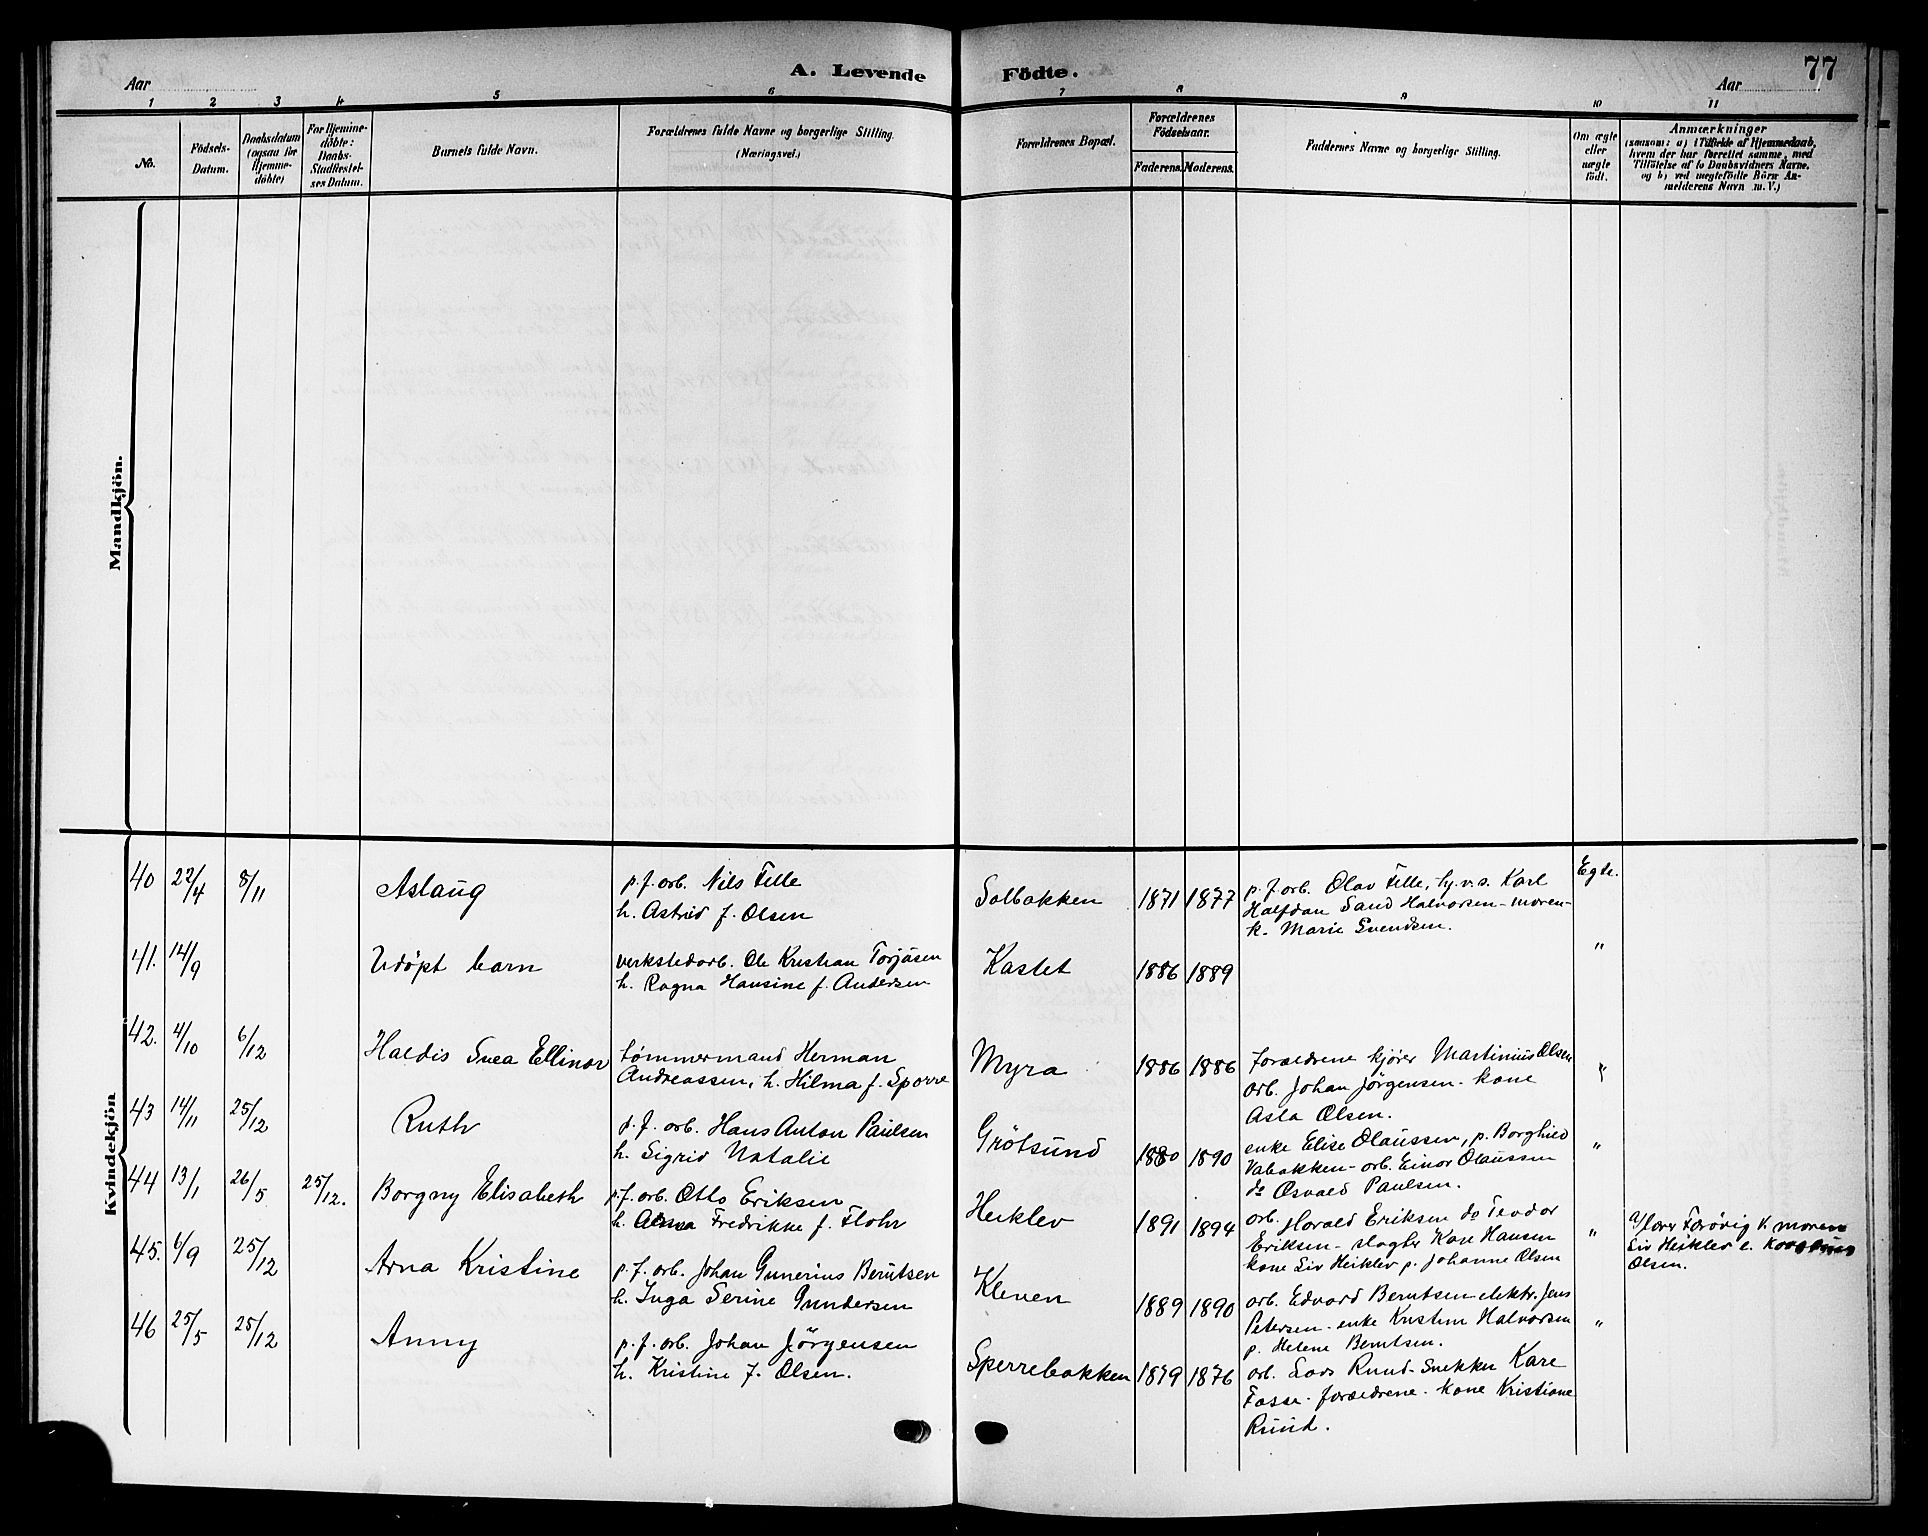 Aar
A. Levende
Födte.
Aar
77
1 2 3 4 5 6 7 8 9 10 11
No.
Födsels-
Datum.
Daabsdatum
(ogsaa for
Hjemme-
döbte)
For Hjemme-
döbte:
Daabs-
Stadfæstel-
ses Datum.
Barnets fulde Navn.
Forældrenes fulde Navne og borgerlige Stilling.
(Næringsvei.)
Forældrenes Bopæl.
Forældrenes
Födselsaar.
Faderens. Moderens.
Faddernes Navne og borgerlige Stilling.
Om ægte
eller
uægte
födt.
Anmærkninger
(saasom: a) i Tilfælde af Hjemmedaab,
hvem der har forrettet samme, med
Tilföielse af to Daabsvidners Navne,
og b) ved uegtefödte Börn An-
melderens Navn m.V.)
Mandkjön.
Kvindekjön
40 22/4 8/11 Aslaug
p. f. arb. Nils Felle
h. Astrid f. Olsen
Solbakken 1871 1877
p. f. arb. Olav Felle, Karl
Halfdan Sand Halvorsen - moren -
k. Marie Svendsen.
Egte.
41. 14/9 Udöpt barn
verkstedarb. Ole Kristian Torjusen
h. Ragna Hansine f. Andersen
Kastet 1886 1889 "
42. 4/10 6/12 Haldis Svea Ellinor
tömmermand Herman
Andreassen, h. Hilma f. Sporre
Myra 1886 1886
forældrene kjörer Martinius Olsen
arb. Johan Jörgensen - kone
Asta Olsen.
"
43 14/11 25/12 Ruth
d. f. arb. Hans Anton Paulsen
h. Sigrid Natalie
Grötsund 1880 1890
enke Elise Olaussen, p. Borghild
Vabakken - arb. Einar Olaussen
do Osvald Paulsen.
"
44 13/1 26/5 25/12. Borgny Elisabeth
p. f. arb. Otto Eriksen
h. Fredrikke f. Flohr
Heiklev 1891 1894
arb. Harald Eriksen do Teodor
Eriksen - slagter Kare Hansen
kone Liv Heiklev p. Johanne Olsen
"
moren
Liv Heiklev
Olsen.
45. 6/9 25/12 Arna Kristine
p. f. arb. Johan Gunerius Berntsen
h. Inga Serine Gundersen
Kleven 1889 1890
arb. Edvard Berntsen elektr. Jens
Petersen - enke Kristine Halvorsen
p. Helene Berntsen.
"
46 25/5 25/12 Anny
p. f. arb. Johan Jörgensen
h. Kristine f. Olsen.
Sperrebakken 1879 1876
arb. Lars Ruud - Snekker Kare
Fosse - forældrene - kone Kristiane
Ruud.